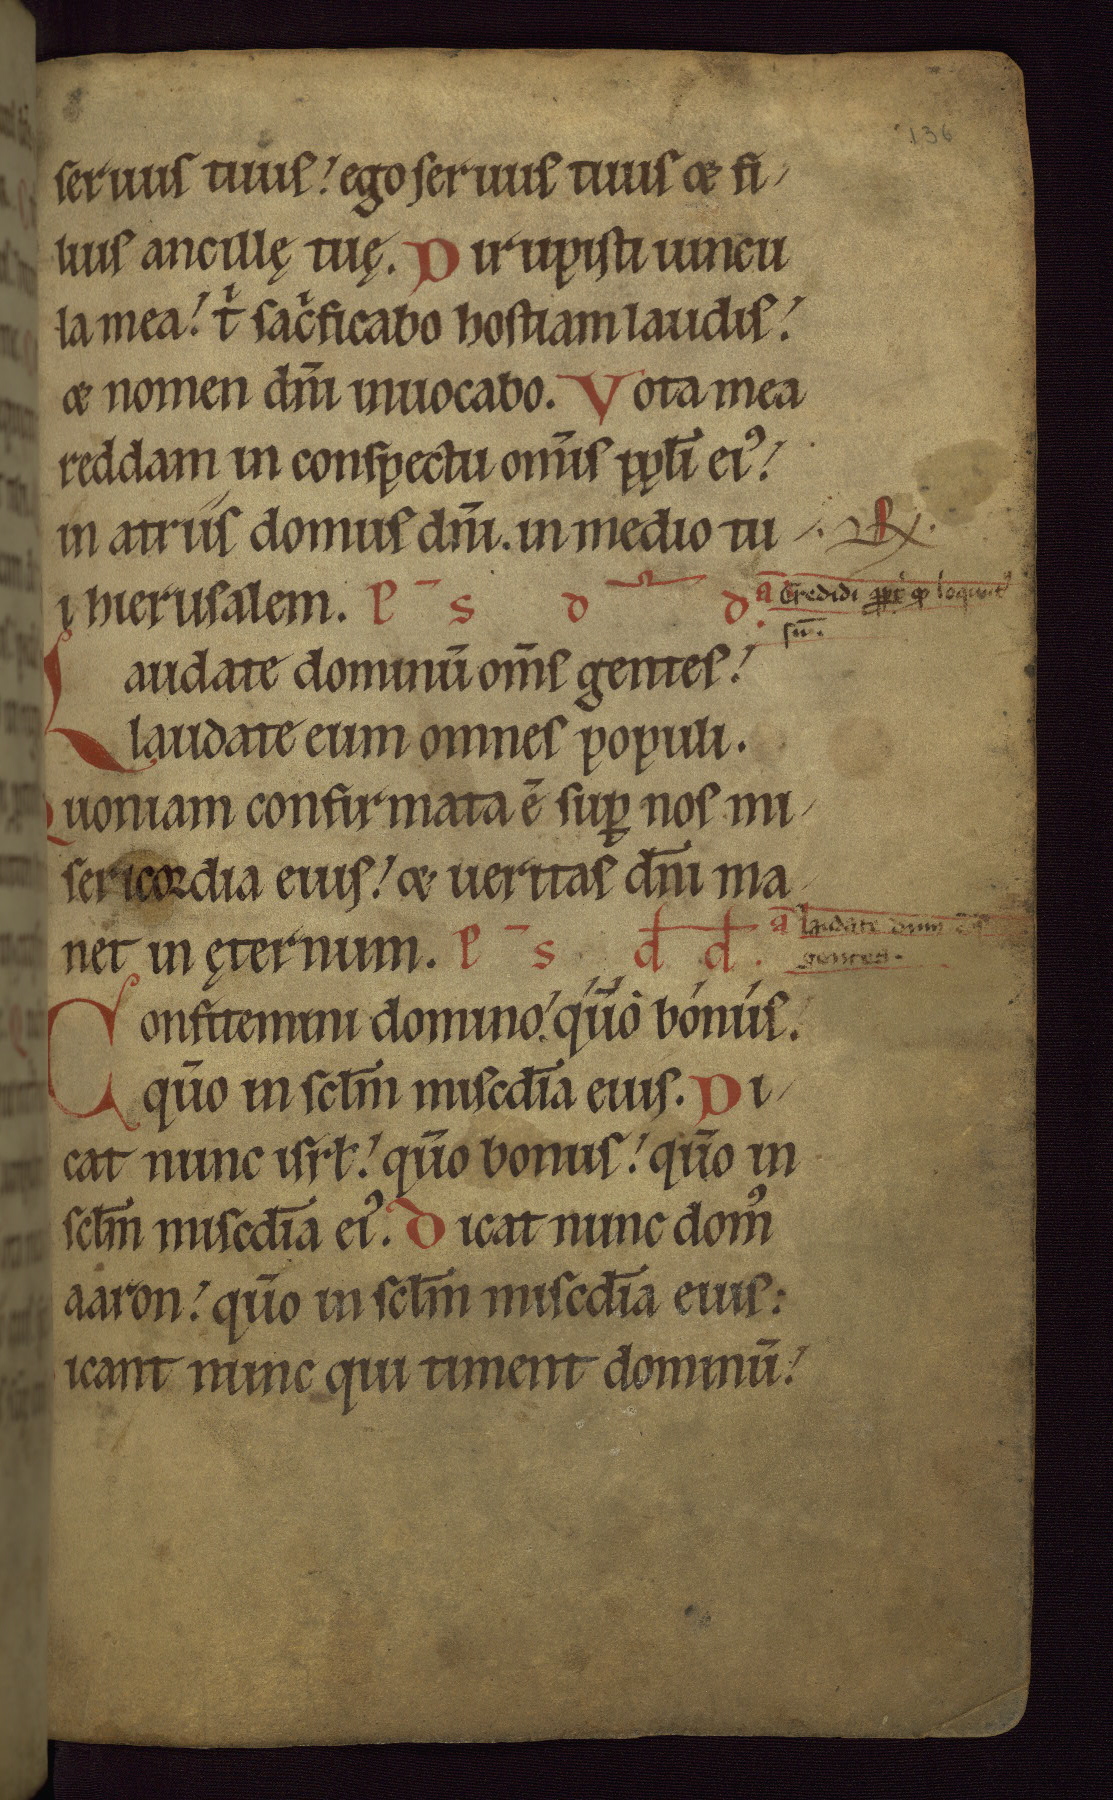 136
seruus tuus! ego seruus tuus & fi-
lius ancillę tuę. Dirupisti uincu
la mea! t͛ sac̄ficabo hostiam laudis!
& nomen dn̄i inuocabo. Vota mea
reddam in conspectu om̄is ppl̄i eiꝰ!
in atriis domus dn̄i. in medio tu
i hierusalem. P ¯ S D D.
ā Credidi loquut
sū.
Laudate dominū om̄s gentes!
laudate eum omnes populi.
Quoniam confirmata ē sup̱ nos mi-
sericordia eius! & ueritas dn̄i ma
net in ęternum. P ¯ S d d.
ā laudate dnm̄ om̄s
gentes.
Confitemini domino! qūo bonus!
qūo in sclm̄ miscdīa eius. Di-
cat nunc isrl̄! qūo bonus! qūo in
sclm̄ miscdīa eiꝰ. Dicat nunc domꝰ
aaron! qūo in sclm̄ miscdīa eius:
icant nunc qui timent dominū!